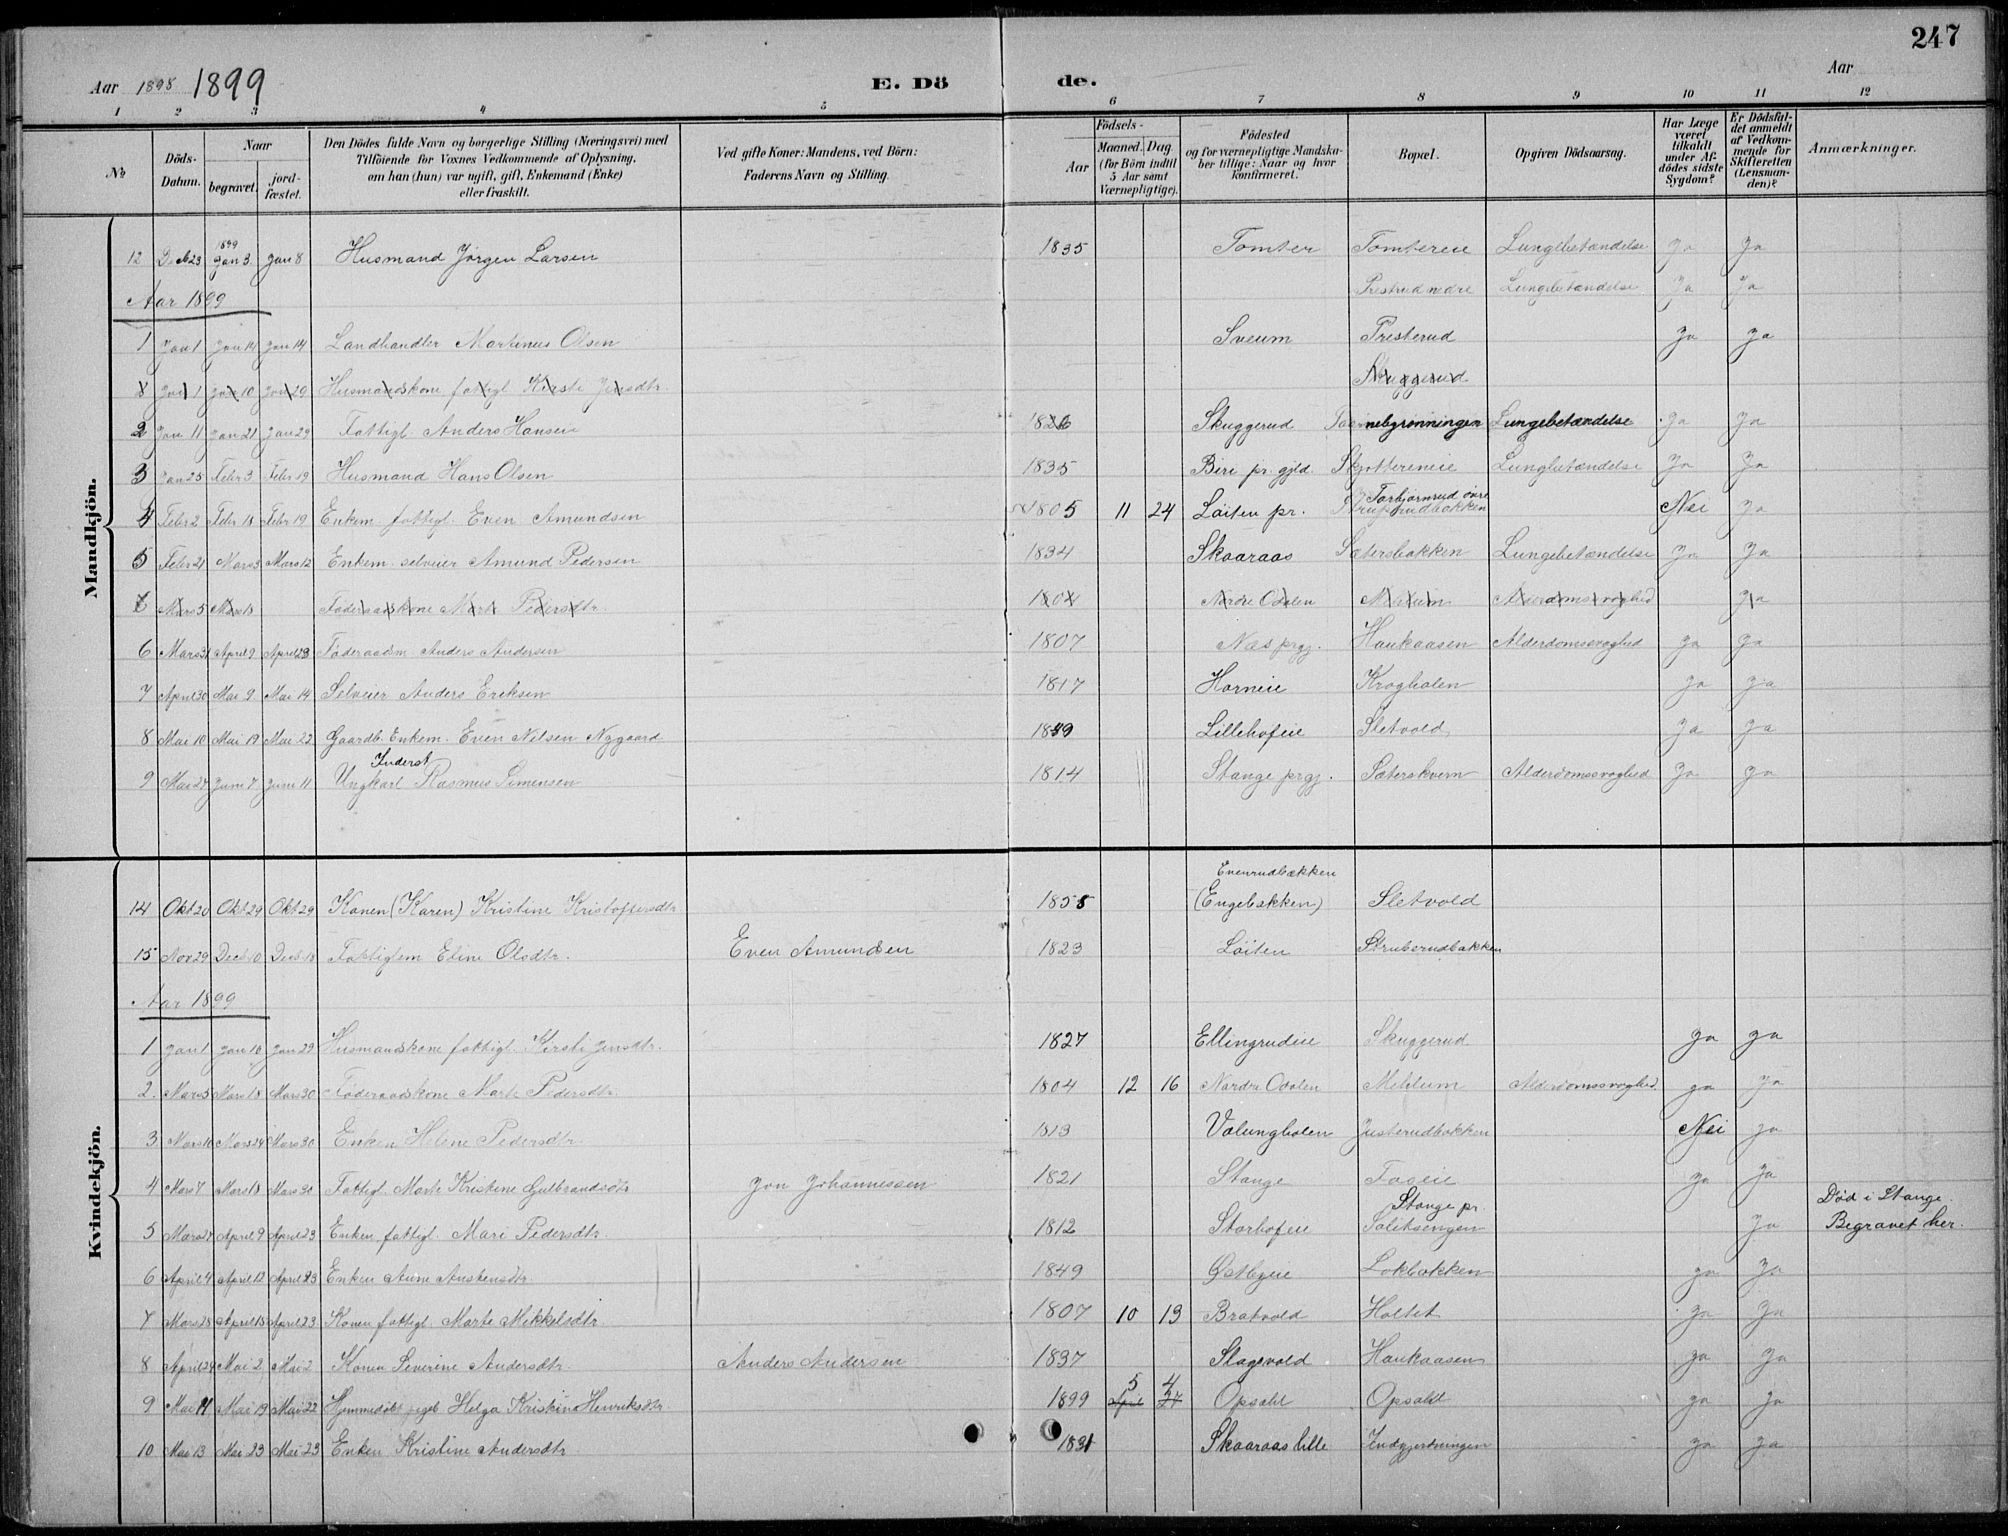 247
Aar 1898 1899 E. Dö de. Aar
1 2 3 4 5 6 7 8 9 10 11 12
No
Döds-Datum.
Naar
begravet.
jord-fæstet.
Den Dödes fulde Navn og borgerlige Stilling (Næringsvei) med
Tilföiende for Voxnes Vedkommende af Oplysning,
om han (hun) var ugift, gift, Enkemand (Enke)
eller fraskilt.
Ved gifte Koner: Mandens, ved Börn:
Faderens Navn og Stilling.
Födsels-
Aar
Maaned. Dag.
(for Börn indtil
5 Aar samt
Værnepligtige).
Födested
og for værnepligtige Mandska-
ber tillige: Naar og hvor
konfirmeret.
Bopæl.
Opgiven Dödsaarsag.
Har Læge
været
tilkaldt
under Af-
dödes sidste
Sygdom?
Er Dödsfal-
det anmeldt
af Vedkom-
mende for
Skifteretten
(Lensman-
den)?
Anmærkninger.
Mandkjön.
12 Dec 23 1899 Jan 3 Jan 8 Husmand Jörgen Larsen 1835 Tomter Tomtereie Lungebetændelse Ja Ja
Aar 1899 Prestrud nedre Lungebetændelse Ja Ja
1 Jan 1 Jan 14 Jan 14 Landhandler Martinus Olsen Sveum Presterud Ja Ja
Jan 1 Jan 10 Jan 29 Husmandskone fattigl. Kersti Jensdtr. Skuggerud
2 Jan 11 Jan 21 Jan 29 Fattigl. Anders Hansen 1826 Skuggerud Lungebetændelse Ja Ja
3 Jan 25 Febr 3 Febr 19 Husmand Hans Olsen 1835 Biri pr. gjld. Skjottereneie Lungbetændelse Ja Ja
4 Febr 2 Febr 18 Febr 19 Enkem. fattigl. Even Amundsen 1805 11 24 Löiten pr. Torbjörnsrud övre Nei Ja
5 Febr 21 Mars 3 Mars 12 Enkem. selveier Amund Pedersen 1834 Skaaraas Sætersbakken Lungebetændelse Ja Ja
6 Mars 5 Mars 18 Föderaadskone Marte Pedersdtr. 1804 Nordre Odalen Mælum Alderdomssvaghed Ja
6 Mars 31 April 9 April 23 Föderaadm. Anders Andersen 1807 Næs prgj. Haukaasen Alderdomssvaghed Ja Ja
7 April 30 Mai 9 Mai 14 Selveier Anders Eriksen 1817 Horneie Krogholen Ja Ja
8 Mai 10 Mai 19 Mai 22 Gaardb. Enkem. Even Nilsen Nygaard Lillehofeie Sletvold Ja Ja
Inderst
9 Mai 27 Juni 7 Juni 11 Ungkarl Rasmus Simensen 1814 Stange prgj. Sæterskvern Alderdomssvaghed Ja Ja
Kvindekjön.
Evenrudbækken
14 Okt 20 Okt 29 Okt 29 Konen (Karen) Kristine Kristoffersdtr 1858 (Engebakken) Sletvold
15 Nov 29 Decb 10 Decb 18 Fattiglem Eline Olsdtr. Even Amundsen 1823 Löiten Struberudbakken
Aar 1899
1 Jan 1 Jan 10 Jan 29 Husmandskone fattigl. Kersti Jensdtr. 1827 Ellingrudeie Skuggerud Ja Ja
2. Mars 5 Mars 18 Mars 30 Föderaadskone Marte Pedersdtr. 1804 12 16 Nordre Odalen Mehlum Alderdomssvaghed Ja Ja
3 Mars 10 Mars 24 Mars 30 Enken Helene Pedersdtr. 1813 Valungholen Justerudbakken Nei Ja
4 Mars 7 Mars 18 Mars 30 Fattigl. Marte Kristine Gulbrandsdtr Jon Johannessen 1821 Stange Foseie Ja Ja
Stange pr. Död i Stange.
5 Mars 27 April 9 April 23 Enken fattigl. Mari Pedersdtr. 1812 Storhofeie Saliksengen Ja Begravet her.
6 April 4 April 12 April 23 Enken Anne Austensdtr. 1849 Østbyeie Lokbakken Ja Ja
7 Mars 28 April 15 April 23 Konen fattigl. Marte Mikkelsdtr. 1807 10 13 Bratvold Holtet Ja Ja
8 April 24 Mai 2 Mai 2 Konen Severine Andersdtr. Anders Andersen 1837 Slagsvold Haukaasen Ja Ja
5 4
9 Mai 11 Mai 19 Mai 22 Hjemmedöbt pigeb. Helga Kristine Henriksdtr. 1899 April 27 Opsahl Opsahl Ja Ja
10 Mai 13 Mai 23 Mai 23 Enken Kristine Andersdtr. 1831 Skaaraas lille Indgjerdningen Ja Ja